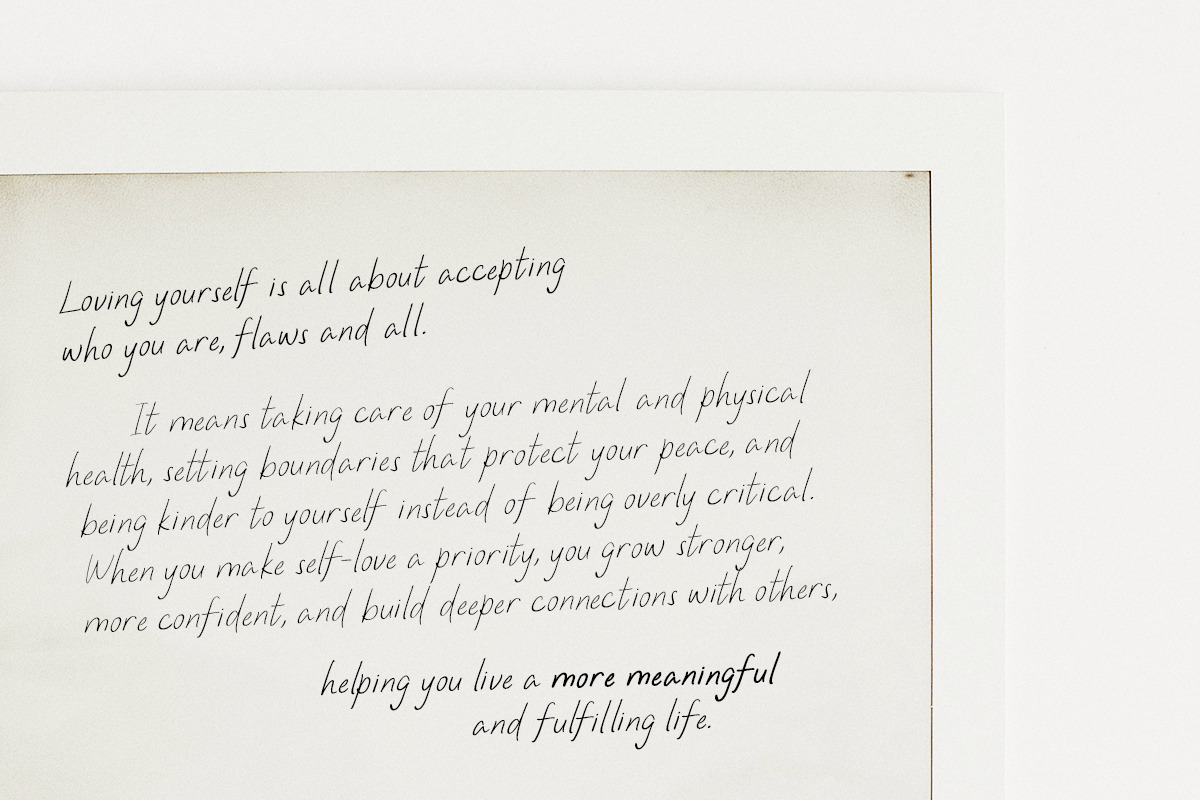 Loving yourself is all about accepting
who you are, flaws and all.
It means taking care of your mental and physical
health, setting boundaries that protect your peace, and
being kinder to yourself instead of being overly critical.
When you make self-love a priority, you grow stronger,
more confident, and build deeper connections with others,
helping you live a more meaningful
and fulfilling life.